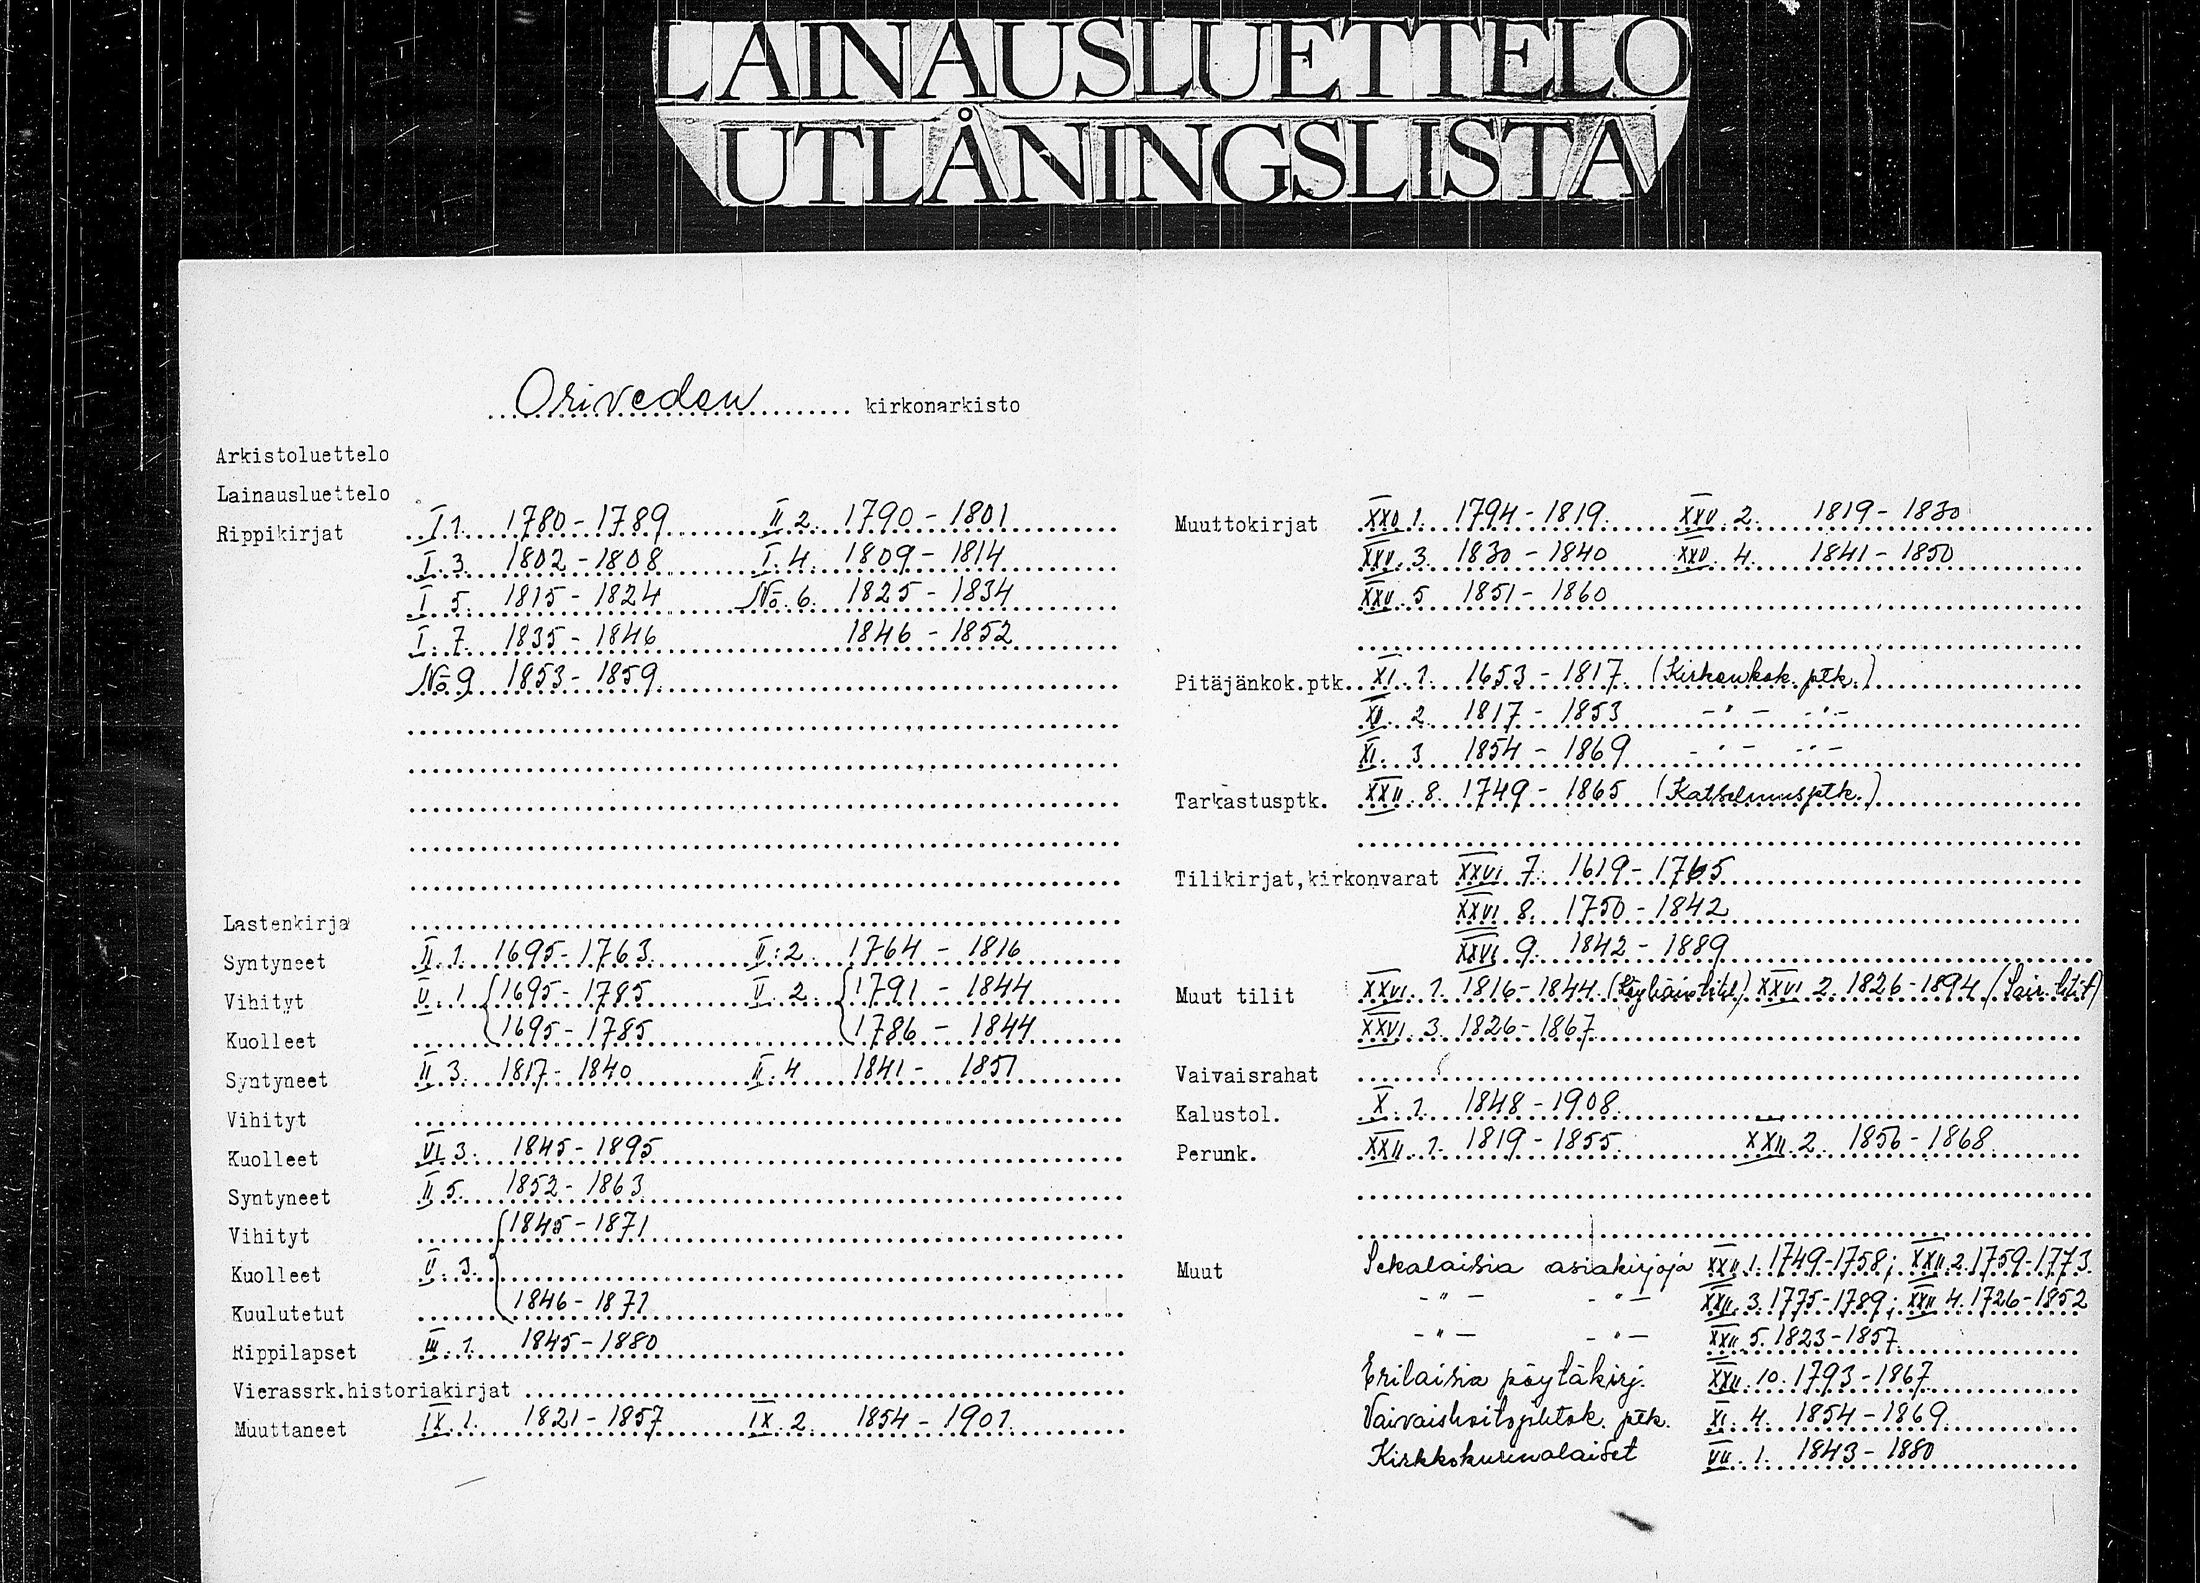 LAINAUSLUETTELO
UTLÅNINGSLISTA
Oriveden kirkonarkisto
Arkistoluettelo
Lainausluettelo
Rippikirjat I 1. 1780-1789 II 2. 1790-1801
I. 3. 1802-1808 I. 4. 1809-1814
I 5. 1815-1824 No. 6. 1825-1834
I. 7. 1835-1846 1846-1852
No 9 1853-1859
Lastenkirja
Syntyneet II. 1. 1695-1763. II. 2. 1764-1816
Vihityt V. 1. 1695-1785 V. 2. 1791-1844
Kuolleet 1695-1785 1786-1844
Syntyneet II 3. 1817-1840 II. 4. 1841-1851
Vihityt
Kuolleet VI 3. 1845-1895
Syntyneet II 5. 1852-1863
Vihityt 1845-1871
Kuolleet V. 3.
Kuulutetut 1846-1871
Rippilapset III. 1. 1845-1880
Vierassrk.historiakirjat
Muuttaneet IX. 1. 1821-1857 IX. 2. 1854-1901.
Muuttokirjat XXV. 1. 1794-1819. XXV. 2. 1819-1830
XXV. 3. 1830-1840 XXV. 4. 1841-1850
XXV. 5 1851-1860
Pitäjänkok.ptk. XI. 1. 1653-1817. (Kirkonkok. ptk.)
XI. 2. 1817-1853 -"- -"-
XI. 3 1854-1869 -"- -"-
Tarkastusptk. XXII. 8. 1749-1865 (Katselmusptk.)
Tilikirjat,kirkonvarat XXVI 7. 1619-1765
XXVI. 8. 1750-1842
XXVI. 9. 1842-1889
Muut tilit XXVI. 1. 1816-1844 XXVI 2. 1826-1894 (Sair. tilit)
XXVI. 3. 1826-1867
Vaivaisrahat
Kalustol. X. 1. 1848-1908.
Perunk. XXII. 1. 1819-1855. XXII. 2. 1856-1868.
Muut Sekalaisia asiakirjoja XXII. 1. 1749-1758; XXII. 2. 1759-1773.
-"- -"- XXII. 3. 1775-1789; XXII 4. 1726-1852
-"- -"- XXII. 5. 1823-1857.
Erilaisia pöytäkirj. XXII. 10. 1793-1867.
Vaivaishoitojohtok. ptk. XI. 4. 1854-1869.
Kirkkokurinalaiset VII. 1. 1843-1880